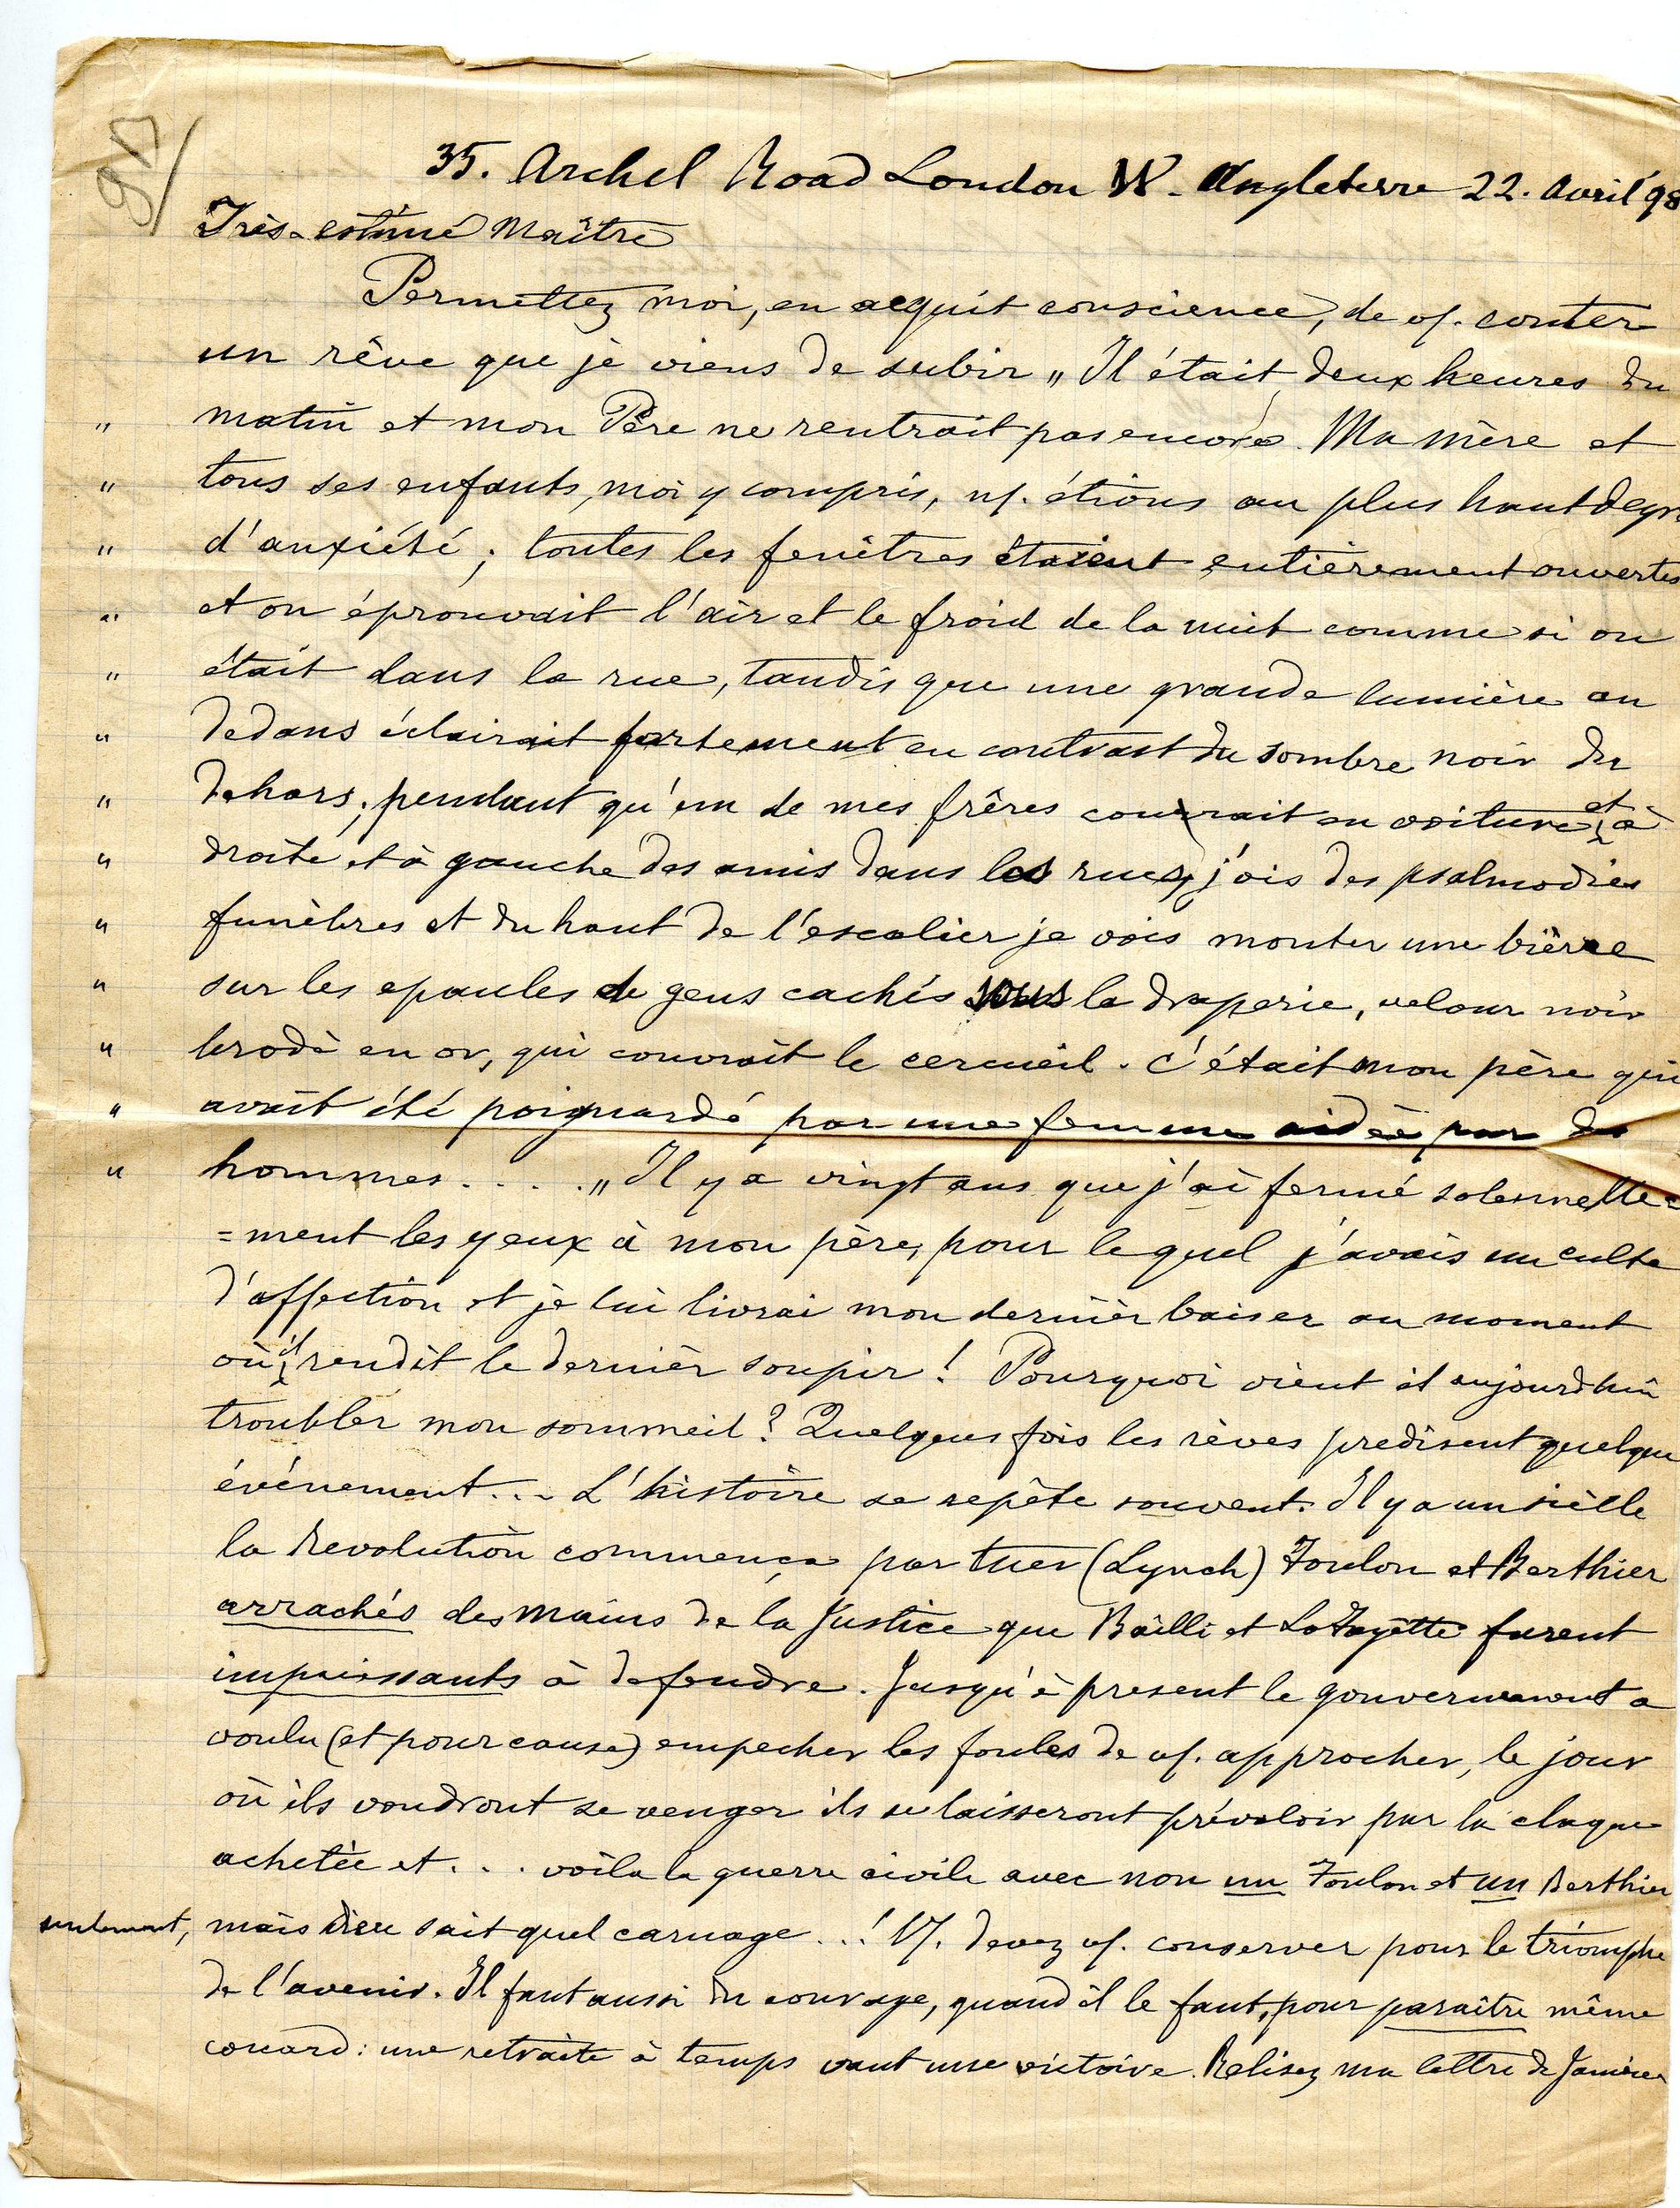 35. Archel Road London W. Angleterre 22. Avril 98
Très-estimé Maître
Permettez moi, en acquit conscience, de vs. conter
un rêve que je viens de subir „ Il était deux heures du
" matin et mon Père ne rentrait pas encore. Ma mère et
" tous ses enfants, moi y compris, ns. étions au plus haut degré
" d'anxiété ; toutes les fenêtres étaient entièrement ouvertes
" et on éprouvait l'air et le froid de la nuit comme si on
" était dans la rue, tandis que une grande lumière au
" dedans éclairait fortement en contrast du sombre noir du
" dehors ; pendant qu'un de mes frères courrait en voiture et à
" droite et à gauche des amis dans les rues, j'ois des psalmodies
" funèbres et du haut de l'escalier je vois monter une bière
" sur les epaules de gens cachés sous la draperie, velour noir
" brodè en or, qui couvrait le cercueil. C'était mon père qui
" avait été poignardé par une femme aidée par des
" hommes. . . . „ Il y a vingt ans que j'ai fermé solennelle=
=ment les yeux à mon père, pour lequel j'avais un culte
d'affection et je lui livrai mon dernier baiser au moment
où il rendit le dernièr soupir ! Pourquoi vient il aujourdhui
troubler mon sommeil ? Quelques fois les rèves predisent quelque
événement... L'histoire se repète souvent. Il y a un sièclle
la Revolution commença par tuer (Lynch) Foulon et Berthier
arrachés des mains de la Justice que Bailli et LaFayette furent
impuissants à defendre. Jusqu'à present le gouvernement a
voulu (et pour cause) empecher les foules de vs. approcher, le jour
où ils voudront se venger ils se laisseront prévaloir par la claque
achetée et . . . voila la guerre civile avec non un Foulon et un Berthier
seulement, mais Dieu sait quel carnage . . ! Vs. devez vs. conserver pour le triomphe
de l'avenir. Il faut aussi du courage, quand il le faut, pour paraître même
couard : une retraite à temps vaut une victoire. Relisez ma lettre de Janvier